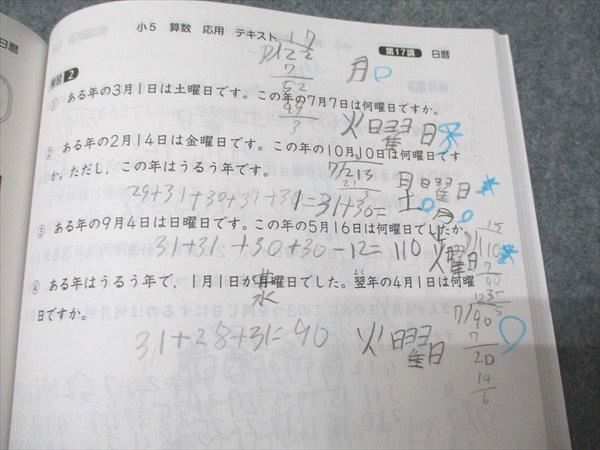 日暦
小5 算数 応用 テキスト
第17講 日暦
練習 2
17
7)122
7
52
49
3
月
① ある年の3月1日は土曜日です。この年の7月7日は何曜日ですか。
火曜日
② ある年の2月14日は金曜日です。この年の10月10日は何曜日です
か。ただし，この年はうるう年です。
7)213
21
3
月曜日
29+31+30+31+30
土
月
③ ある年の9月4日は日曜日です。この年の5月16日は何曜日でしたか。
31+31+30+30-12=110
火曜日
15
7)110
7
40
35
5
④ ある年はうるう年で，1月1日が月曜日でした。翌年の4月1日は何曜
よく
日ですか。
水
31+28+31=90
火曜日
12
7)90
7
20
14
6